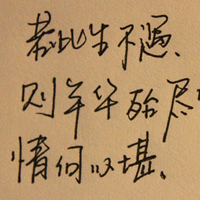 若此生不遇、
则年华殆尽
情何以堪。